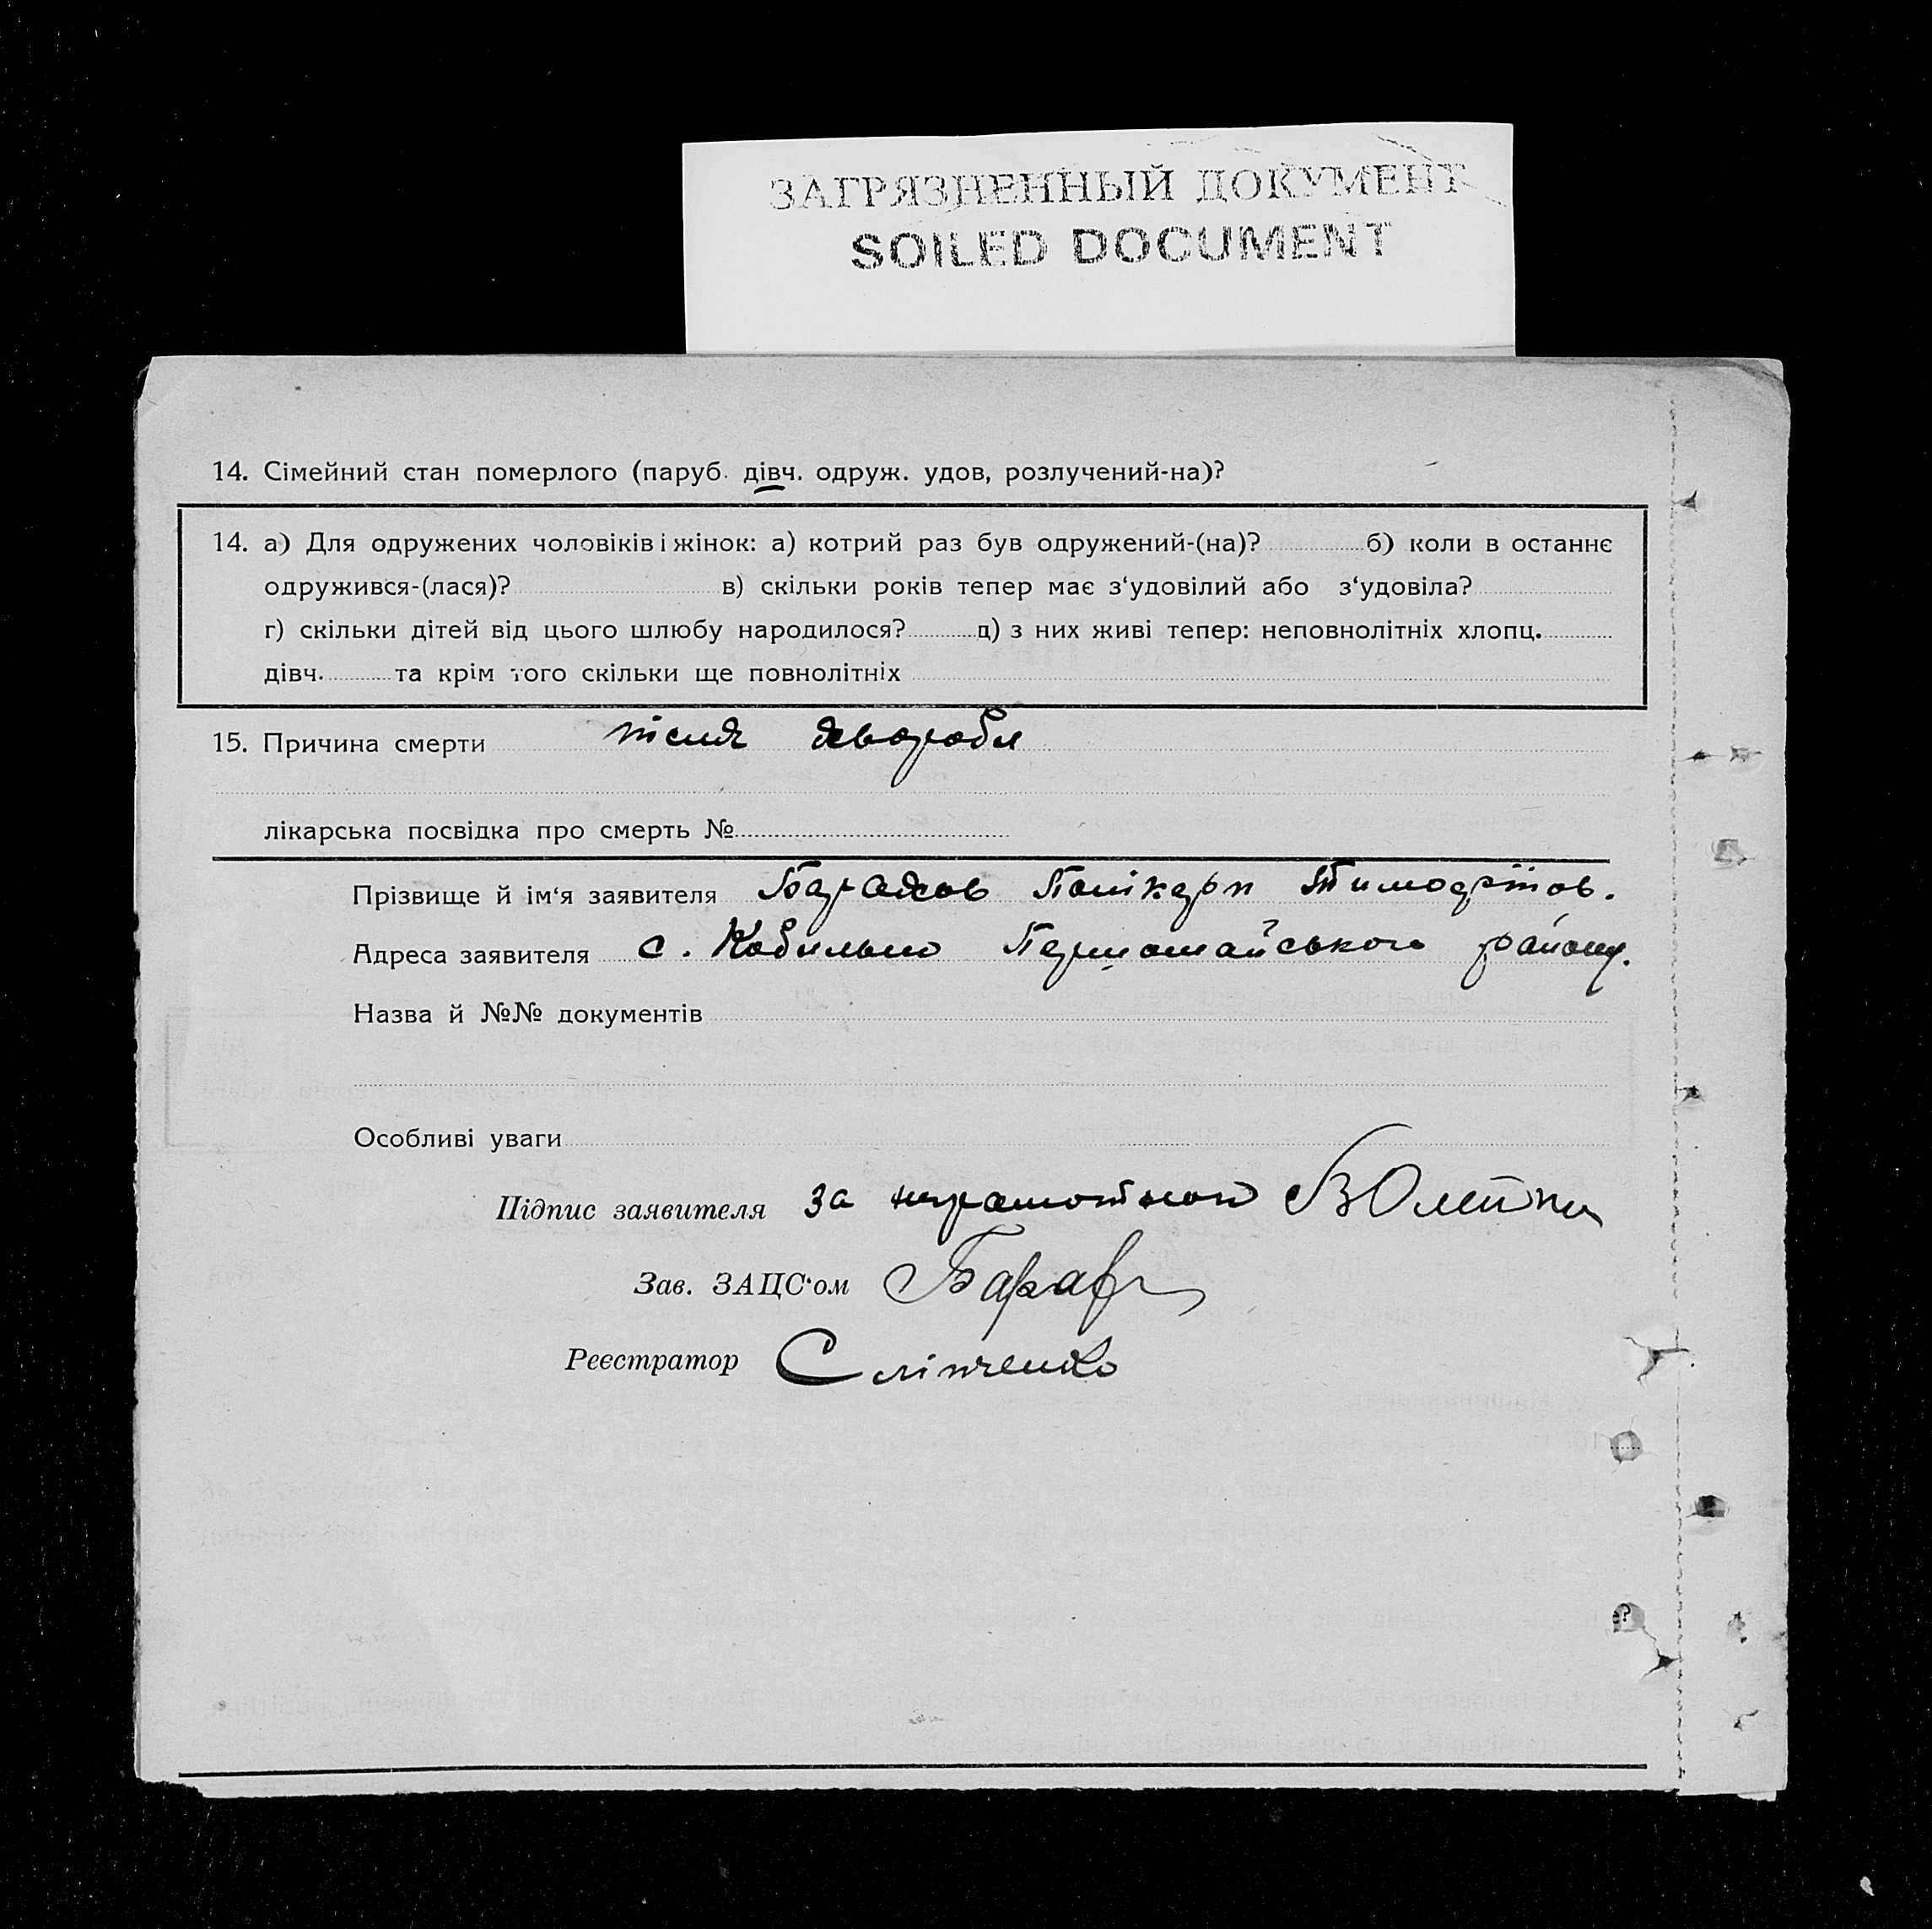 ЗАГРЯЗНЕННЫЙ ДОКУМЕНТ
SOILED DOCUMENT
14. Сімейний стан померлого (паруб. дівч. одруж. удов, розлучений-на)?
14. а) Для одружених чоловіків і жінок: а) котрий раз був одружений-(на)? б) коли в останнє
одружився-(лася)? в) скільки років тепер має з‘удовілий або з‘удовіла?
г) скільки дітей від цього шлюбу народилося? д) з них живі тепер: неповнолітніх хлопц.
дівч. та крім того скільки ще повнолітніх
15. Причина смерти після
лікарська посвідка про смерть №
Прізвище й ім‘я заявителя Полікарп Тимофійов.
Адреса заявителя с. Кобильно Першомайського району.
Назва й №№ документів
Особливі уваги
Підпис заявителя за
Зав. ЗАЦС‘ом
Реєстратор Сліпченко
?